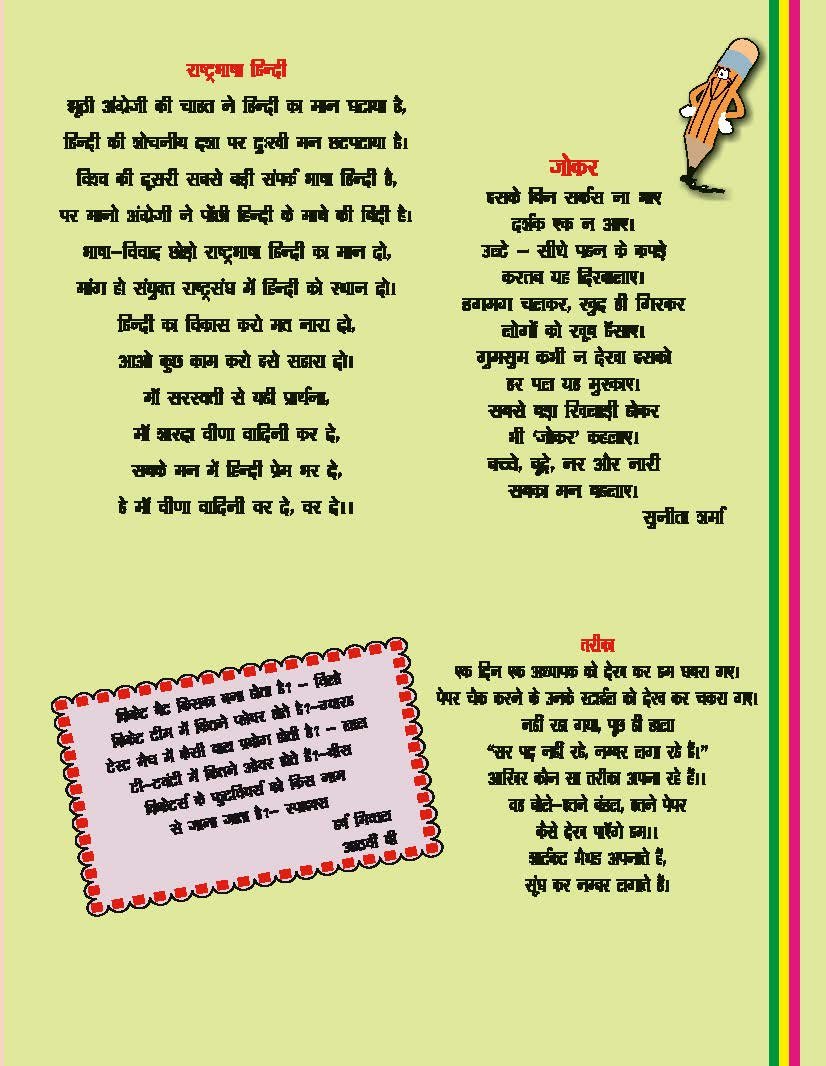 राष्ट्रभाषा हिन्दी
झूठी अंग्रेजी की चाहत ने हिन्दी का मान घटाया है,
हिन्दी की शोचनीय दशा पर दुःखी मन छटपटाया है।
विश्व की दूसरी सबसे बड़ी संपर्क भाषा हिन्दी है,
पर मानो अंग्रेजी ने पोंछी हिन्दी के माथे की बिंदी है।
भाषा-विवाद छोड़ो राष्ट्रभाषा हिन्दी का मान दो,
मांग हो संयुक्त राष्ट्रसंघ में हिन्दी को स्थान दो।
हिन्दी का विकास करो मत नारा दो,
आओ कुछ काम करो इसे सहारा दो।
माँ सरस्वती से यही प्रार्थना,
माँ शारदा वीणा वादिनी कर दे,
सबके मन में हिन्दी प्रेम भर दे,
हे माँ वीणा वादिनी वर दे, वर दे।।
जोकर
इसके बिन सर्कस ना भाए
दर्शक एक न आए।
उल्टे - सीधे पहन के कपड़े
करतब यह दिखलाए।
डगमग चलकर, खुद ही गिरकर
लोगों को खूब हँसाए।
गुमसुम कभी न देखा इसको
हर पल यह मुस्काए।
सबसे बड़ा खिलाड़ी होकर
भी 'जोकर' कहलाए।
बच्चे, बूढ़े, नर और नारी
सबका मन बहलाए।
सुनीता शर्मा
क्रिकेट बैट किसका बना होता है? - विलो
क्रिकेट टीम में कितने प्लेयर होते है?-ग्यारह
टेस्ट मैच में कैसी बाल प्रयोग होती है? - लाल
टी-टवंटी में कितने ओवर होते हैं?-बीस
क्रिकेटर्स के फुटवियर्स को किस नाम
से जाना जाता है?- स्पाइक्स
हर्ष मित्तल
आठवीं बी
तरीका
एक दिन एक अध्यापक को देख कर हम घबरा गए।
पेपर चैक करने के उनके स्टाईल को देख कर चकरा गए।
नहीं रहा गया, पूछ ही डाला
“सर पढ़ नहीं रहे, नम्बर लगा रहे हैं।”
आखिर कौन सा तरीका अपना रहे हैं।।
वह बोले-इतने बंडल, इतने पेपर
कैसे देख पाएँगे हम।।
शार्टकट मैथड अपनाते हैं,
सूंघ कर नम्बर लगाते हैं।